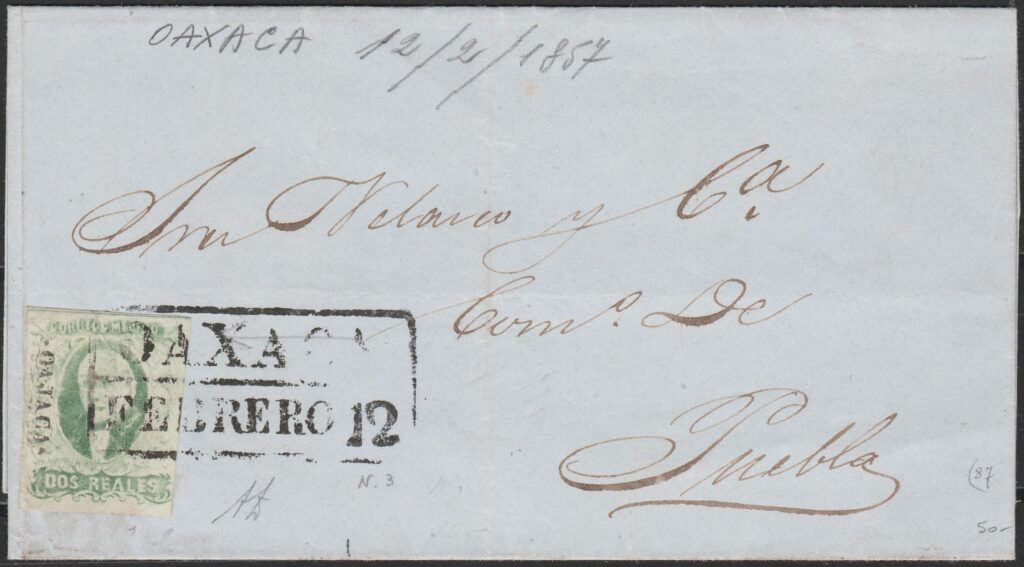 OAXACA 12/2/1857
Sres Velasco y Cª
Como. De
Puebla
CORREOS MEJICO
OAJACA
DOS REALES
OAXACA
FEBRERO 12
N. 3
87
50-